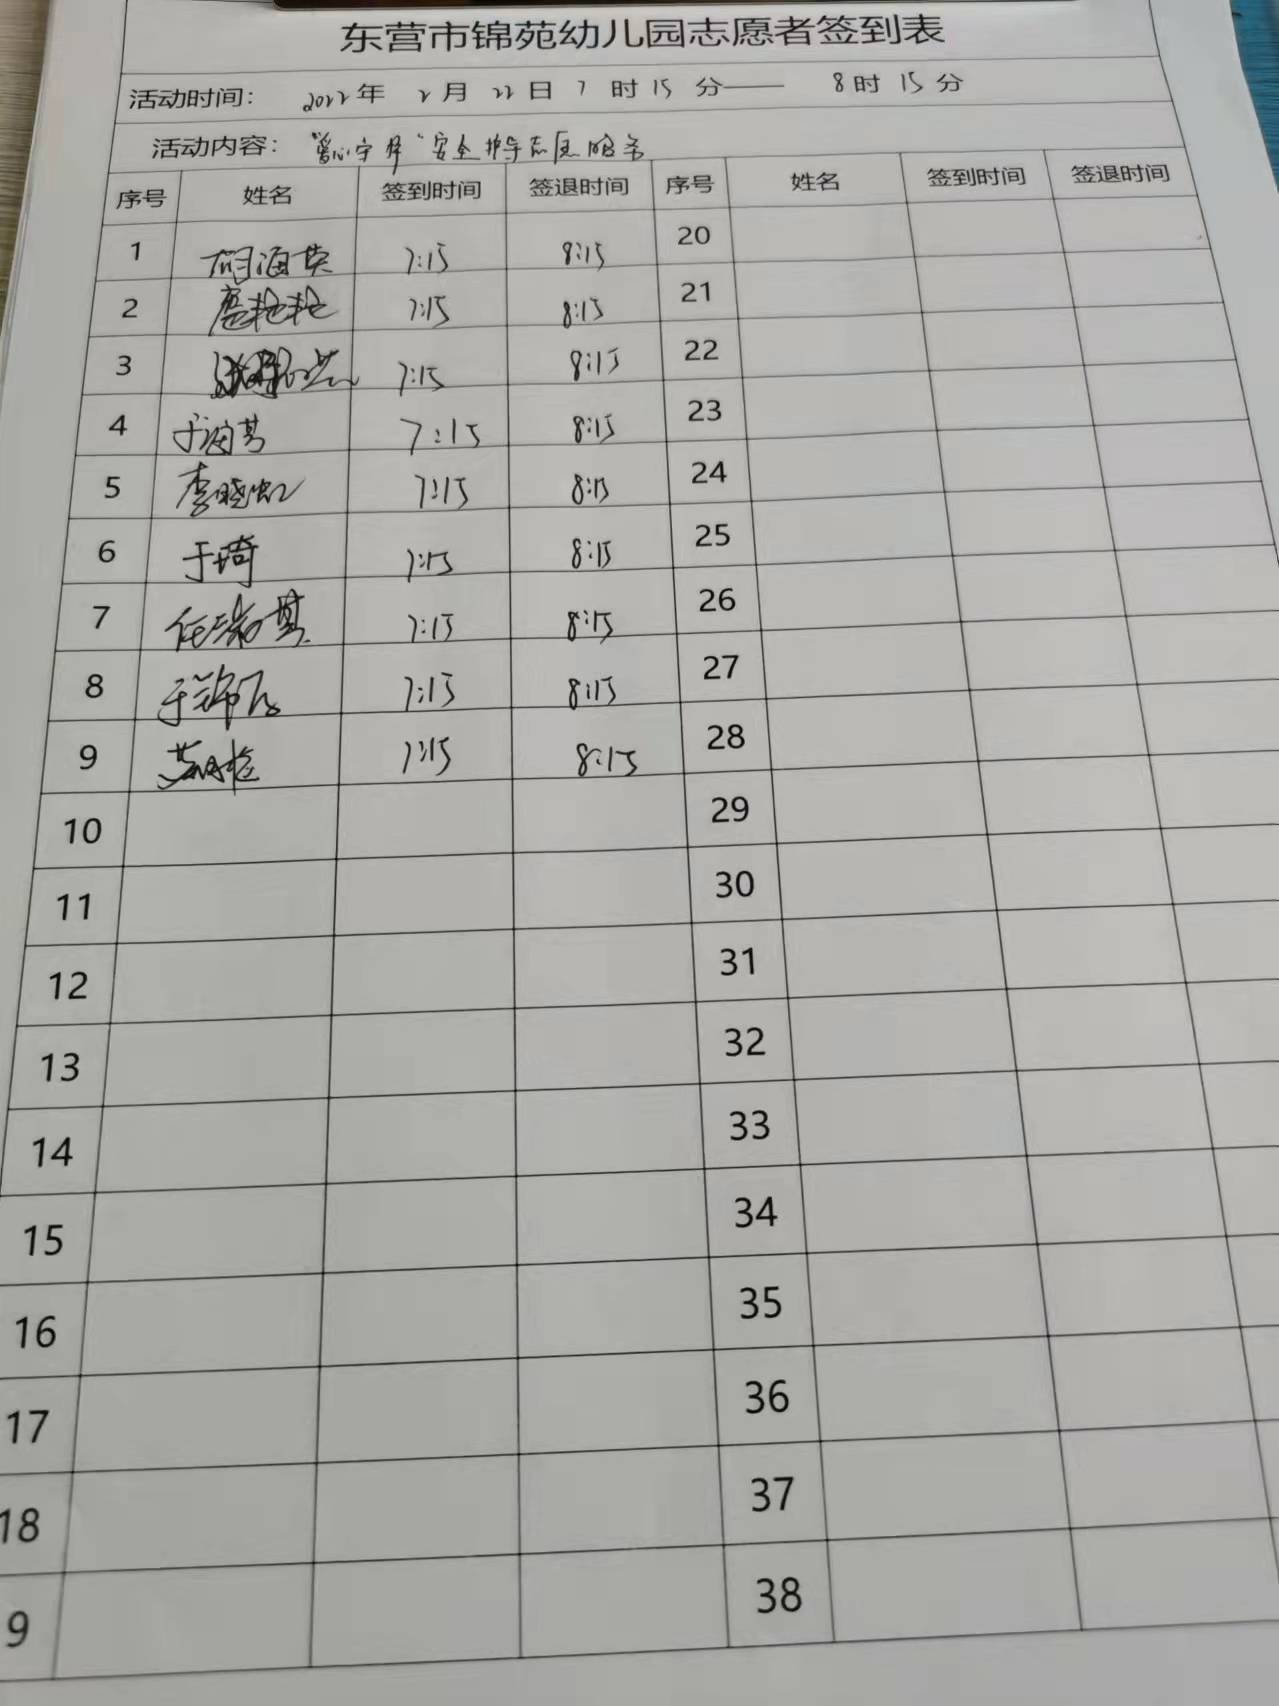 东营市锦苑幼儿园志愿者签到表
活动时间： 2022年 2月 22日 7时15分—— 8时15分
活动内容： "爱心守护"安全护导志愿服务
序号 姓名 签到时间 签退时间 序号 姓名 签到时间 签退时间
1 胡海英 7:15 8:15 20
2 唐艳艳 7:15 8:15 21
3 7:15 8:15 22
4 于海芳 7:15 8:15 23
5 李晓虹 7:15 8:15 24
6 于琦 7:15 8:15 25
7 任瑞其 7:15 8:15 26
8 于锦飞 7:15 8:15 27
9 7:15 8:15 28
10 29
11 30
12 31
13 32
14 33
15 34
16 35
17 36
18 37
9 38